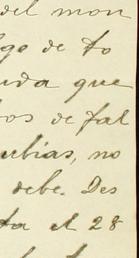 del mon
go de to
uda que
os de fal
ubias, no
debe. Des
ta el 28